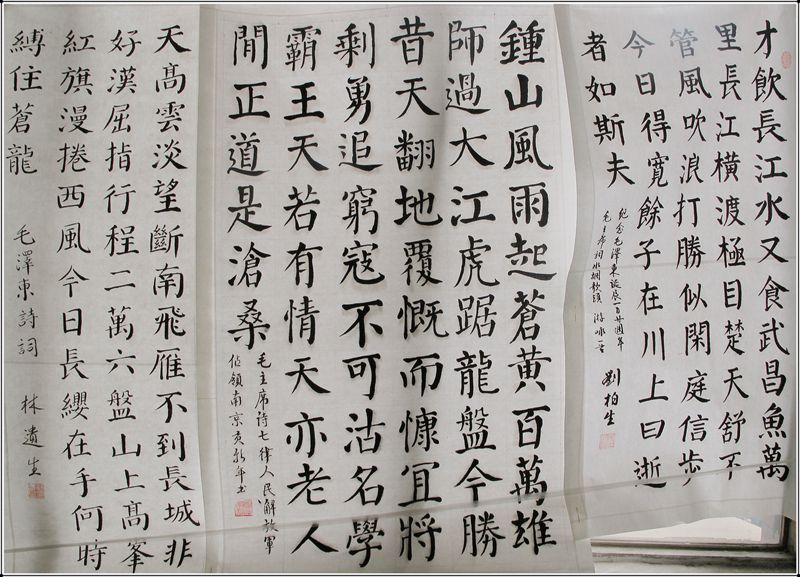 才飲長江水又食武昌魚萬
里長江橫渡極目楚天舒不
管風吹浪打勝似閑庭信步
今日得寬餘子在川上曰逝
者如斯夫
紀念毛澤東誕辰一百廿週年
毛主席詞水調歌頭 游泳
劉柏生
鍾山風雨起蒼黃百萬雄
師過大江虎踞龍盤今勝
昔天翻地覆慨而慷宜將
剩勇追窮寇不可沽名學
霸王天若有情天亦老人
閒正道是滄桑
毛主席詩七律人民解放軍
佔領南京
天髙雲淡望斷南飛雁不到長城非
好漢屈指行程二萬六盤山上髙峯
紅旗漫捲西風今日長纓在手何時
縛住蒼龍 毛澤東詩詞 林遺生